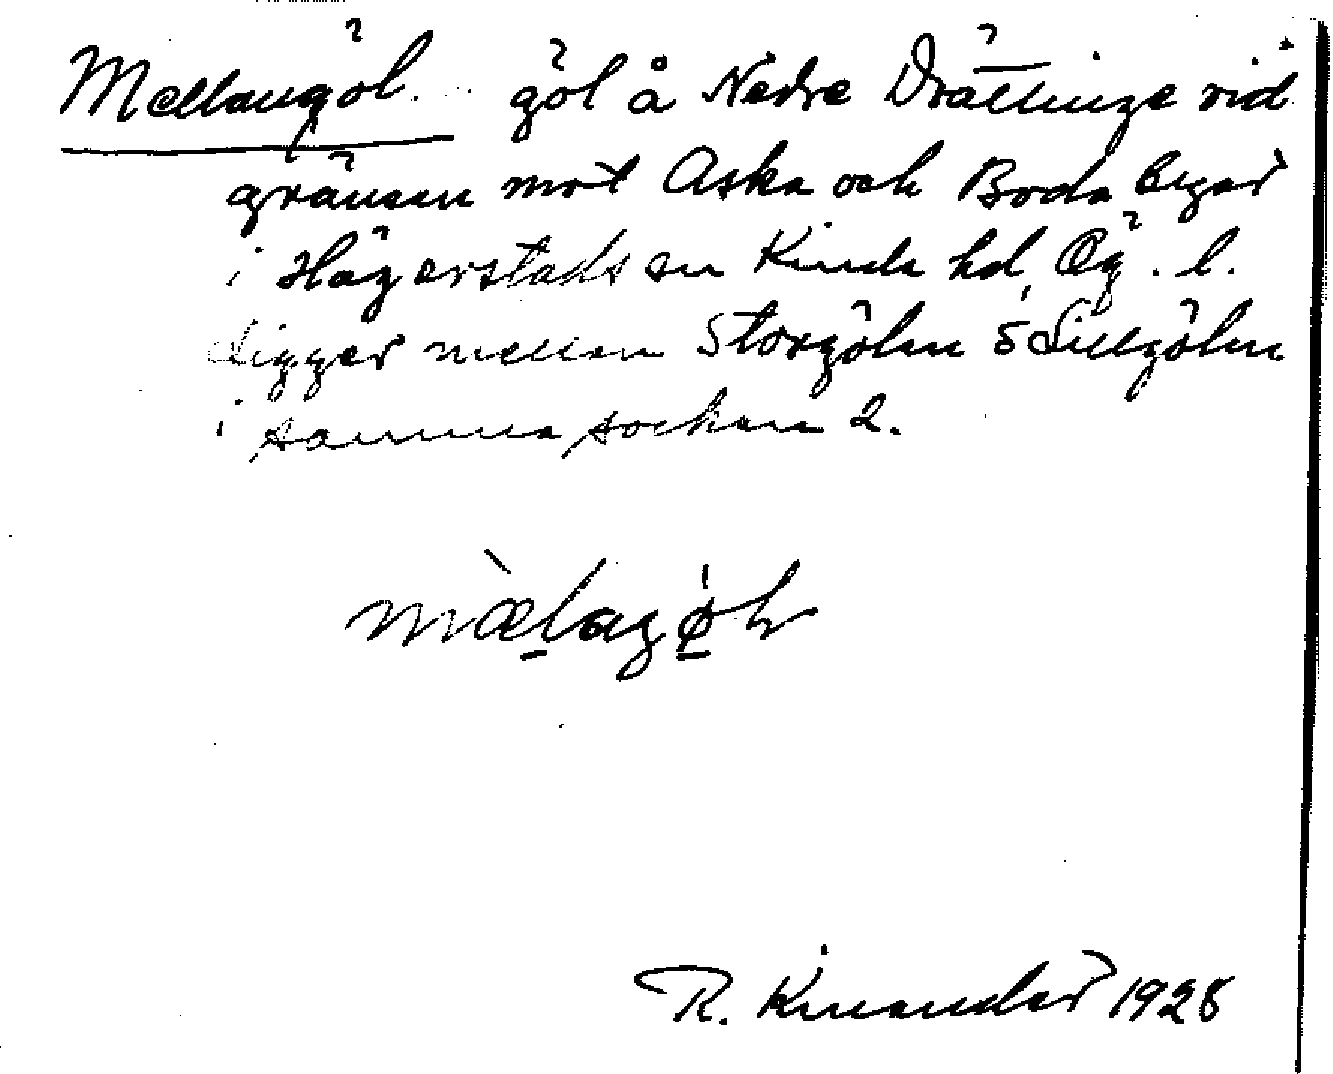 Mellangöl. göl å Nedre Drällinge vid
gränsen mot Aska och Boda byar
i Hägerstads sn Kinda hd, Ög. l.
Ligger mellan Storgöln o Lillgöln
i samma socken 2.
R. Kinander 1928